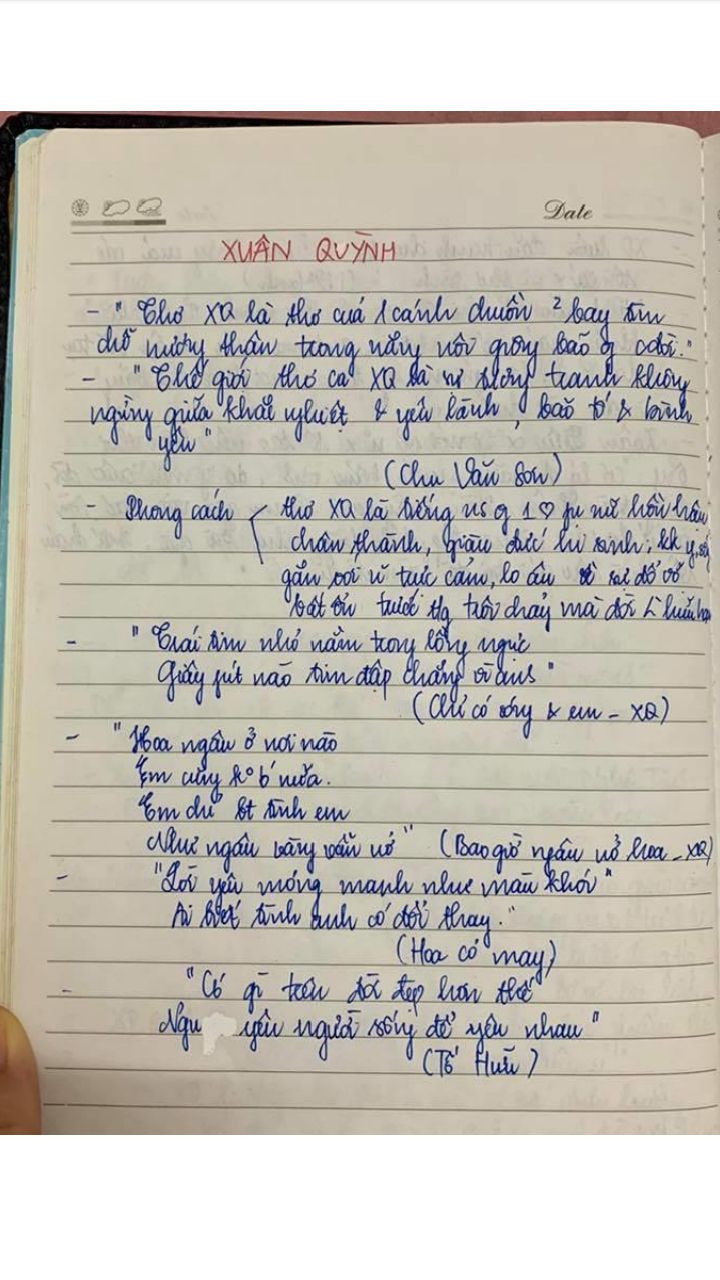 Date
XUÂN QUỲNH
- " Thơ XQ là thơ của 1 cánh chuồn ² bay tìm
chỗ nương thân trong nắng nôi giông bão g cđời."
- " Thế giới thơ ca XQ là sự tương tranh không
ngừng giữa khắc nghiệt & yên lành, bão tố & bình
yên"
(Chu Văn Sơn)
- Phong cách < thơ XQ là tiếng ns g 1 ♡ pn nữ hồn hậu
chân thành, giàu đức hi sinh, kk y, số
gắn với trực cảm, lo âu về sự đổ vỡ
bất ổn trước tg trôi chảy mà đời hữu hạn
- " Trái tim nhỏ nằm trong lồng ngực
Giây phút nào tim đập chẳng vì anh "
(Chỉ có sóng & em - XQ)
- " Hoa ngâu ở nơi nào
Em cũng ko b' nữa.
Em chỉ bt tình em
Như ngâu vàng vẫn nở " (Bao giờ ngâu nở hoa - XQ)
- "Lời yêu mỏng manh như màu khói"
Ai biết tình anh có đổi thay."
(Hoa cỏ may)
- "Có gì trên đời đẹp hơn thế
Ngư yêu người sống để yêu nhau "
(Tố Hữu)